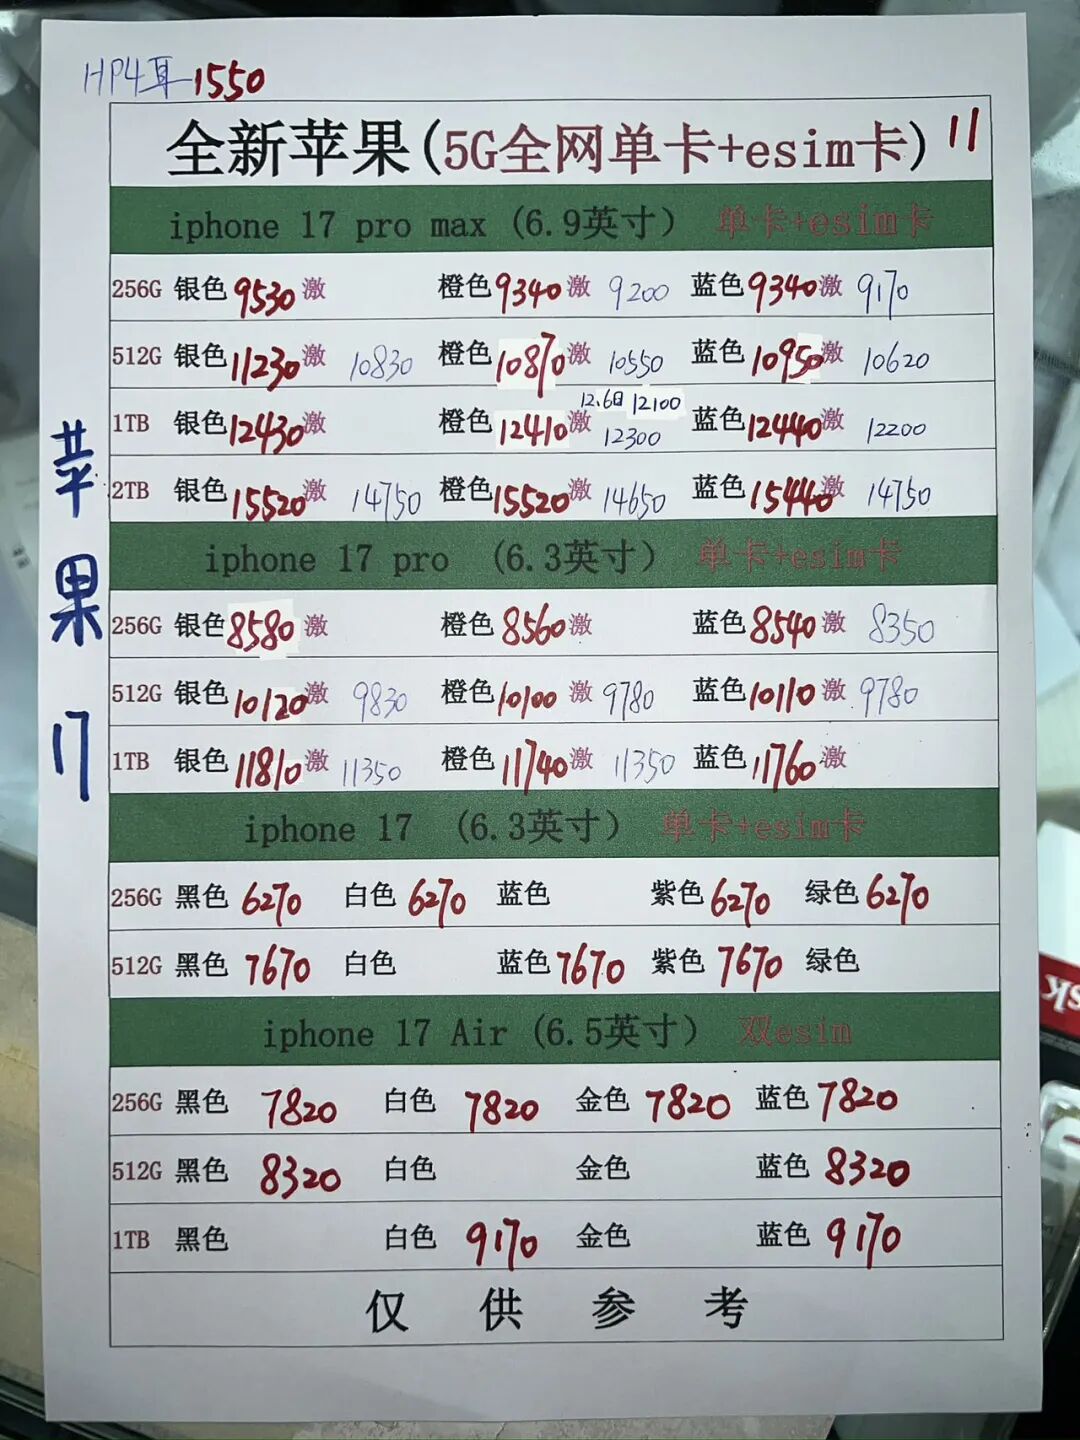 HP4耳 1550
全新苹果(5G全网单卡+esim卡) 11
iphone 17 pro max (6.9英寸) 单卡+esim卡
256G 银色 9530 激 橙色 9340 激 9200 蓝色 9340 激 9170
512G 银色 11230 激 10830 橙色 10870 激 10550 蓝色 10950 激 10620
12.6日 12100
1TB 银色 12430 激 橙色 12410 激 12300 蓝色 12440 激 12200
2TB 银色 15520 激 14750 橙色 15520 激 14650 蓝色 15440 激 14750
iphone 17 pro (6.3英寸) 单卡+esim卡
256G 银色 8580 激 橙色 8560 激 蓝色 8540 激 8350
512G 银色 10120 激 9830 橙色 10100 激 9780 蓝色 10110 激 9780
1TB 银色 11810 激 11350 橙色 11740 激 11350 蓝色 11760 激
iphone 17 (6.3英寸) 单卡+esim卡
256G 黑色 6270 白色 6270 蓝色 紫色 6270 绿色 6270
512G 黑色 7670 白色 蓝色 7670 紫色 7670 绿色
iphone 17 Air (6.5英寸) 双esim
256G 黑色 7820 白色 7820 金色 7820 蓝色 7820
512G 黑色 8320 白色 金色 蓝色 8320
1TB 黑色 白色 9170 金色 蓝色 9170
仅供参考
苹果17
sk